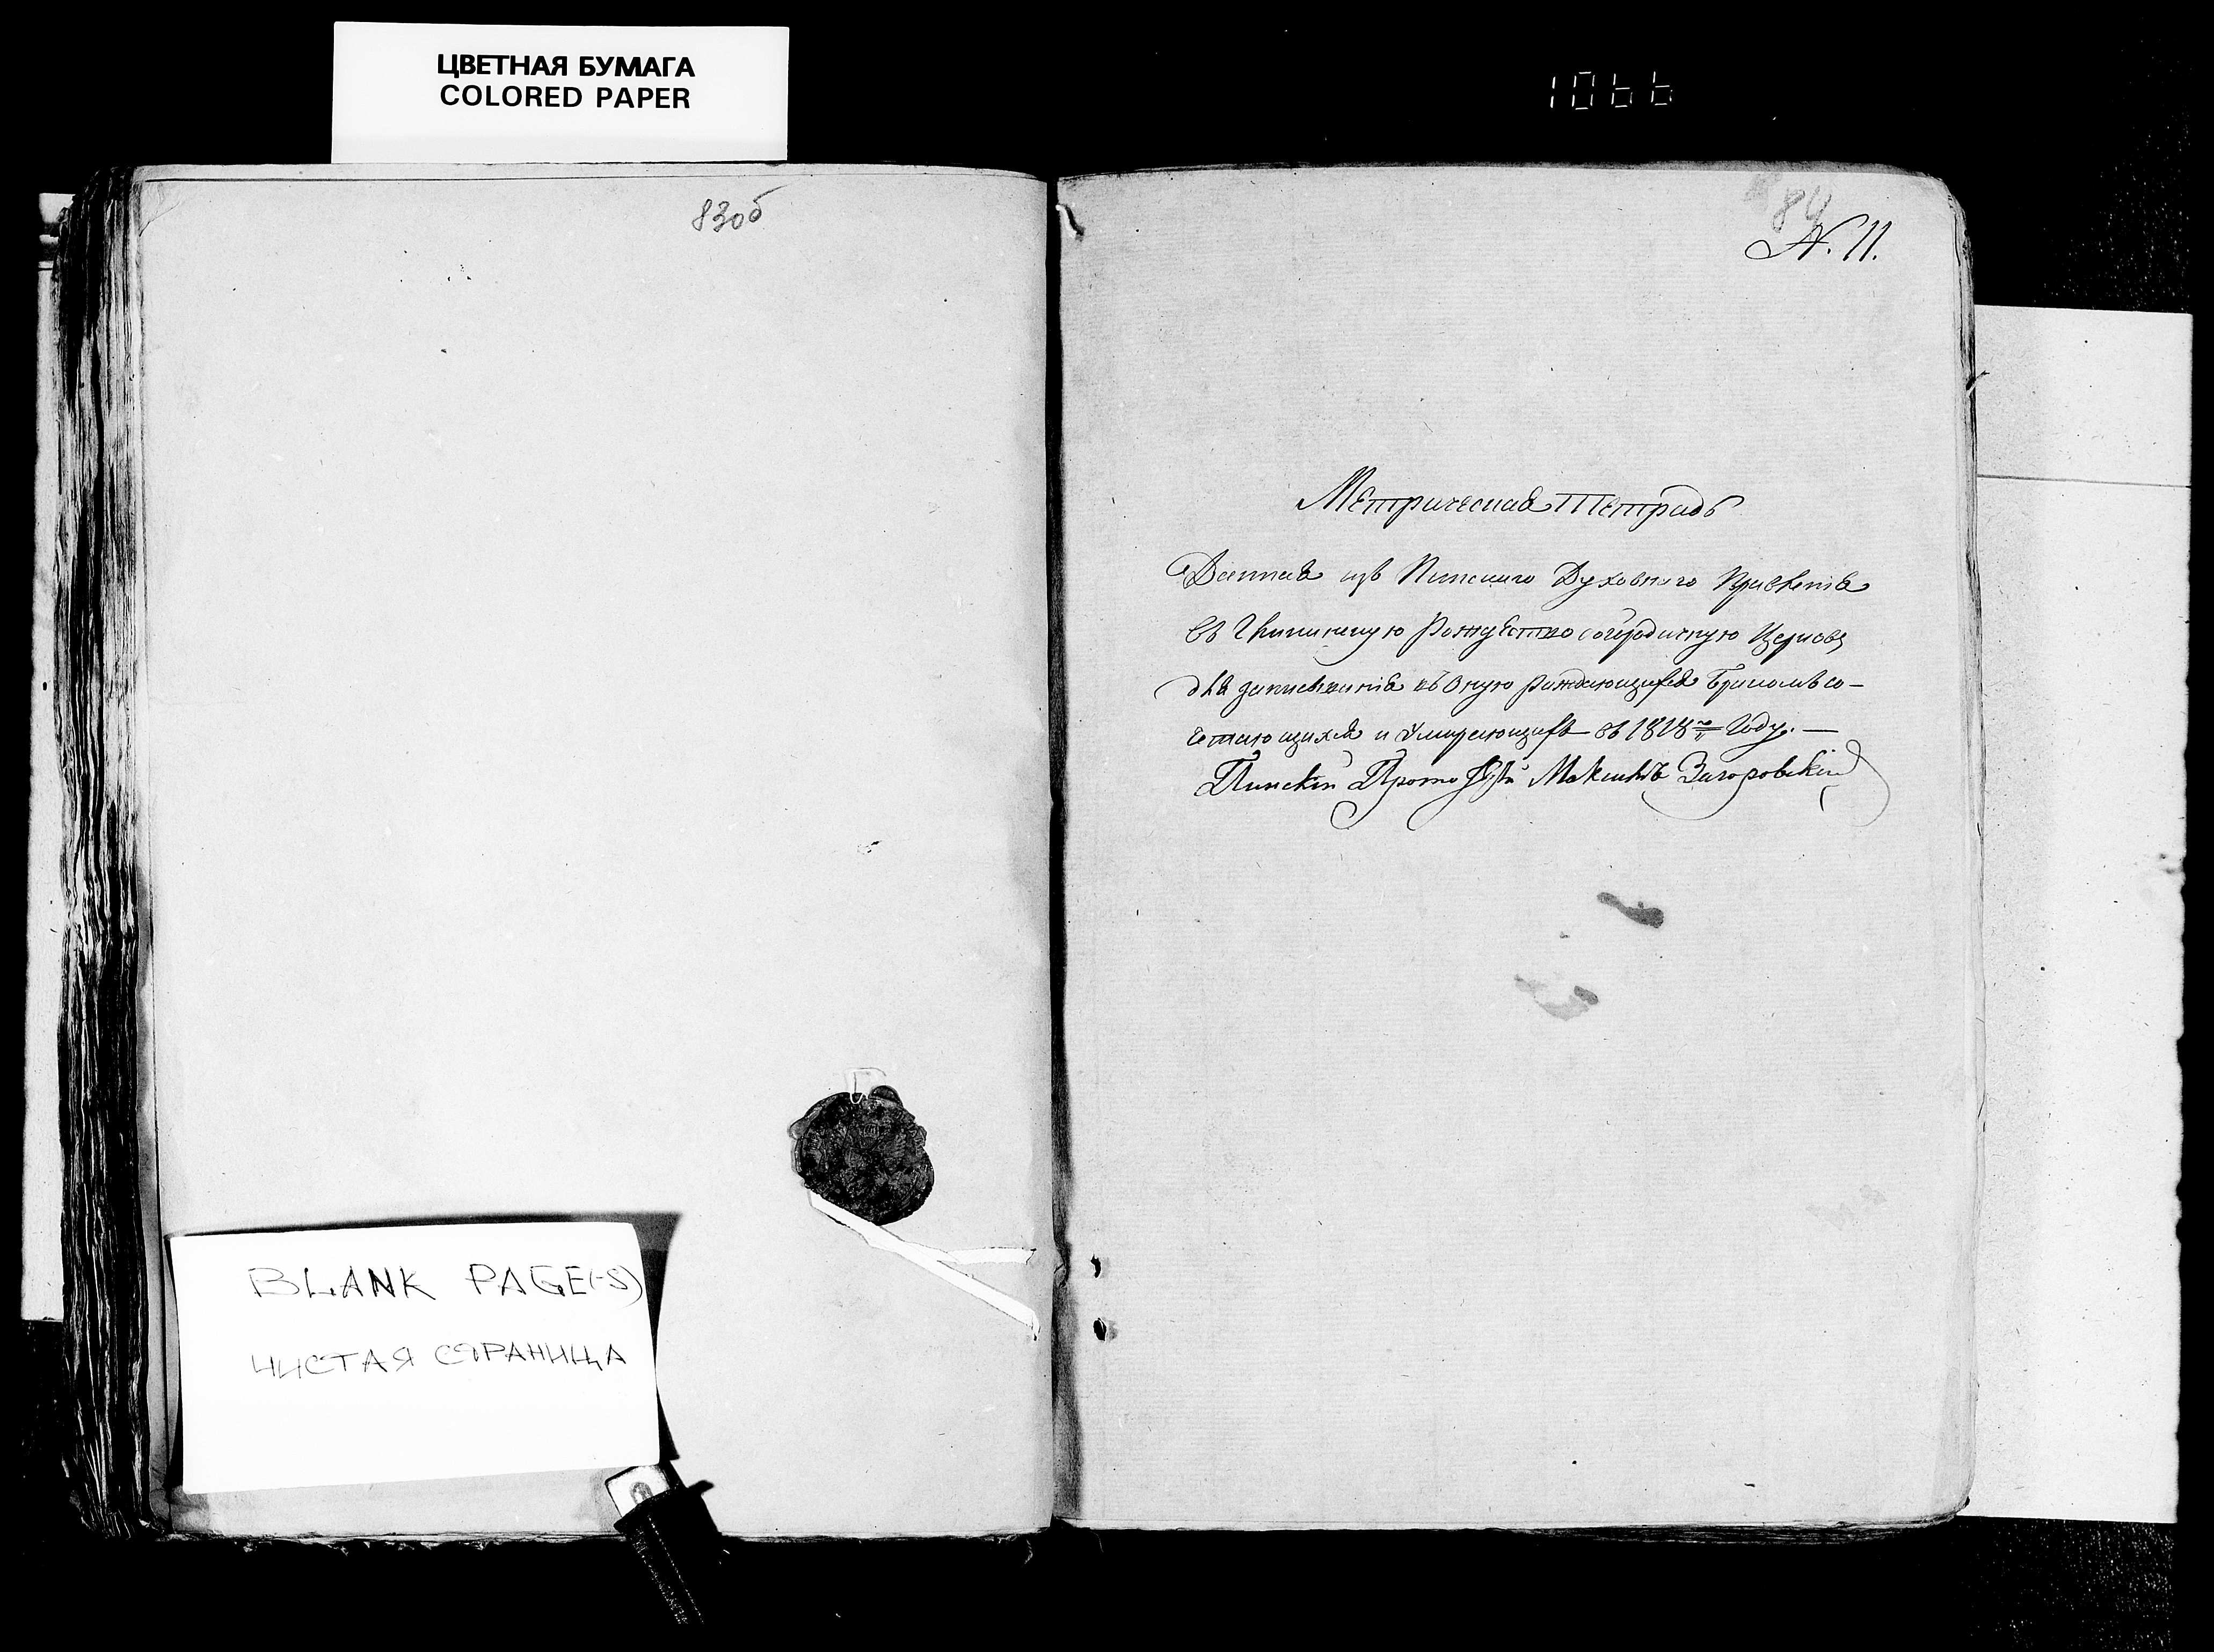 ЦВЕТНАЯ БУМАГА
COLORED PAPER
1066
83об
84
N. 11.
Метрическая Тетрадь
Данная изъ Пинскаго Духовнаго Правленія
въ Рождество богородичную Церковь
для записыванія въ оную рождающихся бракомъ со-
четающихся и умирающихъ въ 1818 м Году. —
Пинскій Прото Максимъ Загоровскій
BLANK PAGE(-S)
ЧИСТАЯ СТРАНИЦА